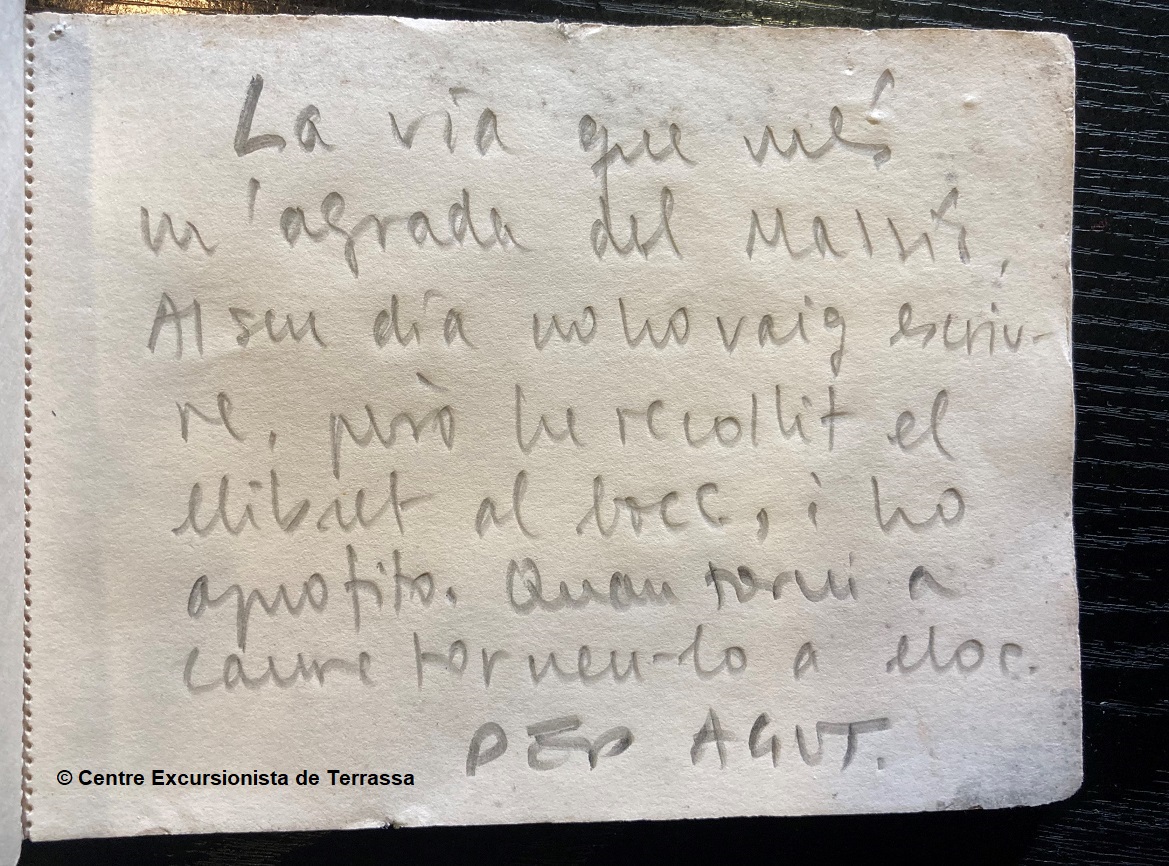 La vía que més
m'agrada del Massís.
Al seu día no ho vaig escriu-
re, però he recollit el
llibret al bocc, i ho
aprofito. Quan torni a
caure torneu-lo a lloc.
PEP AGUT.
© Centre Excursionista de Terrassa